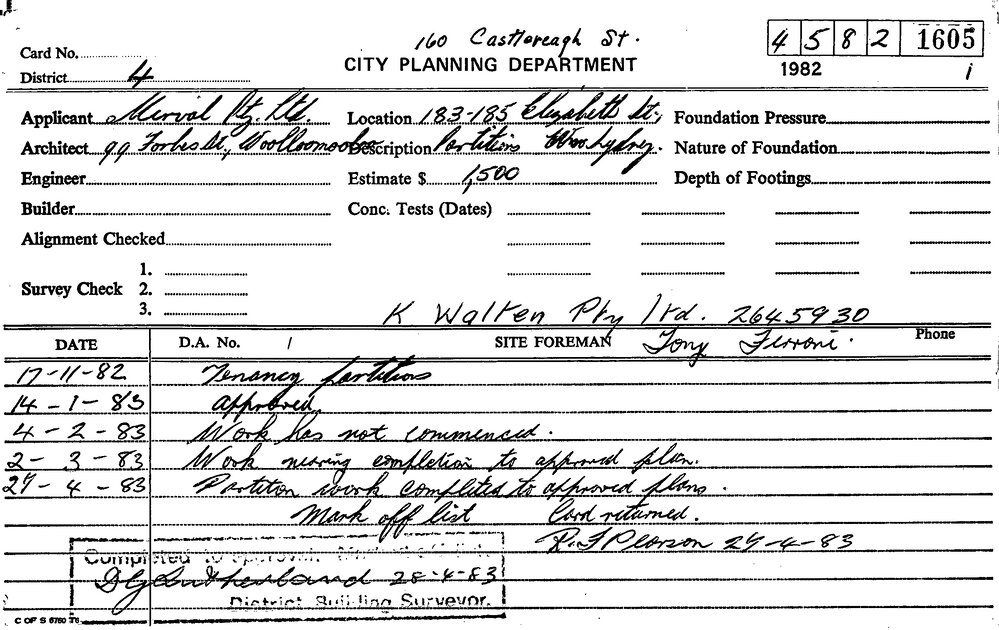 160 Castlereagh St.
4 5 8 2 1605
Card No.
CITY PLANNING DEPARTMENT
District 4
1982
1
Applicant Merival Pty. Ltd. Location 183-185 Elizabeth St., Foundation Pressure
Architect 99 Forbes St., Woolloomooloo Description Partitions Nature of Foundation
Engineer Estimate $ 1,500 Depth of Footings
Builder Conc. Tests (Dates)
Alignment Checked
1.
Survey Check 2.
3.
K Walten Pty ltd. 2645930
DATE D.A. No. / SITE FOREMAN Tony Ferroni. Phone
17-11-82 Tenancy partitions
14-1-83 approved.
4-2-83 Work has not commenced.
2-3-83 Work nearing completion to approved plan.
27-4-83 Partiton work completed to approved plans.
Mark off list Card returned.
R.J Pearson 27-4-83
Completed to approval.
D G Sutherland 28-4-83
District Building Surveyor.
C OF S 6760 76